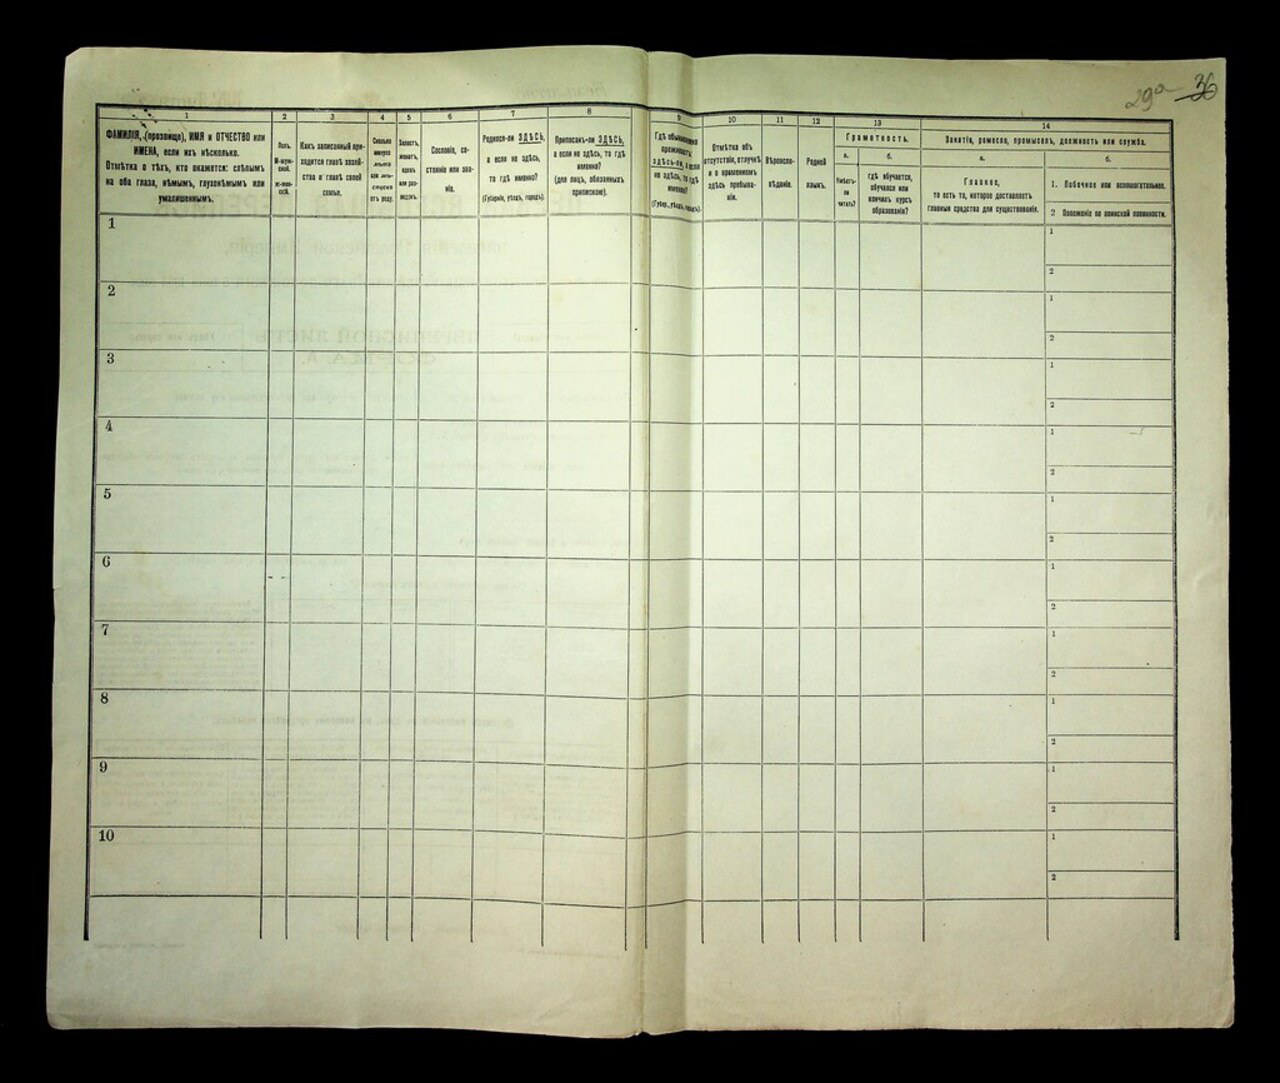 29а 36
1
ФАМИЛІЯ, (прозвище), ИМЯ и ОТЧЕСТВО или
ИМЕНА, если ихъ нѣсколько.
Отмѣтка о тѣхъ, кто окажется: слѣпымъ
на оба глаза, нѣмымъ, глухонѣмымъ или
умалишеннымъ.
2
Полъ.
М-муж-
ской.
Ж-жен-
скій.
3
Какъ записанный при-
ходится главѣ хозяй-
ства и главѣ своей
семьи.
4
Сколько
минуло
лѣтъ
или мѣ-
сяцевъ
отъ роду.
5
Холостъ,
женатъ,
вдовъ
или раз-
веденъ.
6
Сословіе, со-
стояніе или зва-
ніе.
7
Родился-ли ЗДѢСЬ,
а если не здѣсь,
то гдѣ именно?
(Губернія, уѣздъ, городъ).
8
Приписанъ-ли ЗДѢСЬ,
а если не здѣсь, то гдѣ
именно?
(для лицъ, обязанныхъ
припискою).
9
Гдѣ обыкновенно
проживаетъ:
здѣсь-ли, а если
не здѣсь, то гдѣ
именно?
(Губер., уѣздъ, городъ).
10
Отмѣтка объ
отсутствіи, отлучкѣ
и о временномъ
здѣсь пребыва-
ніи.
11
Вѣроиспо-
вѣданіе.
12
Родной
языкъ.
13
Грамотность.
а.
Умѣетъ-
ли
читать?
б.
гдѣ обучается,
обучался или
кончилъ курсъ
образованія?
14
Занятія, ремесло, промыселъ, должность или служба.
а.
Главное,
то есть то, которое доставляетъ
главныя средства для существованія.
б.
1. Побочное или вспомогательное.
2 Положеніе по воинской повинности.
1
1
2
2
1
2
3
1
2
4
1
2
5
1
2
6
1
2
7
1
2
8
1
2
9
1
2
10
1
2